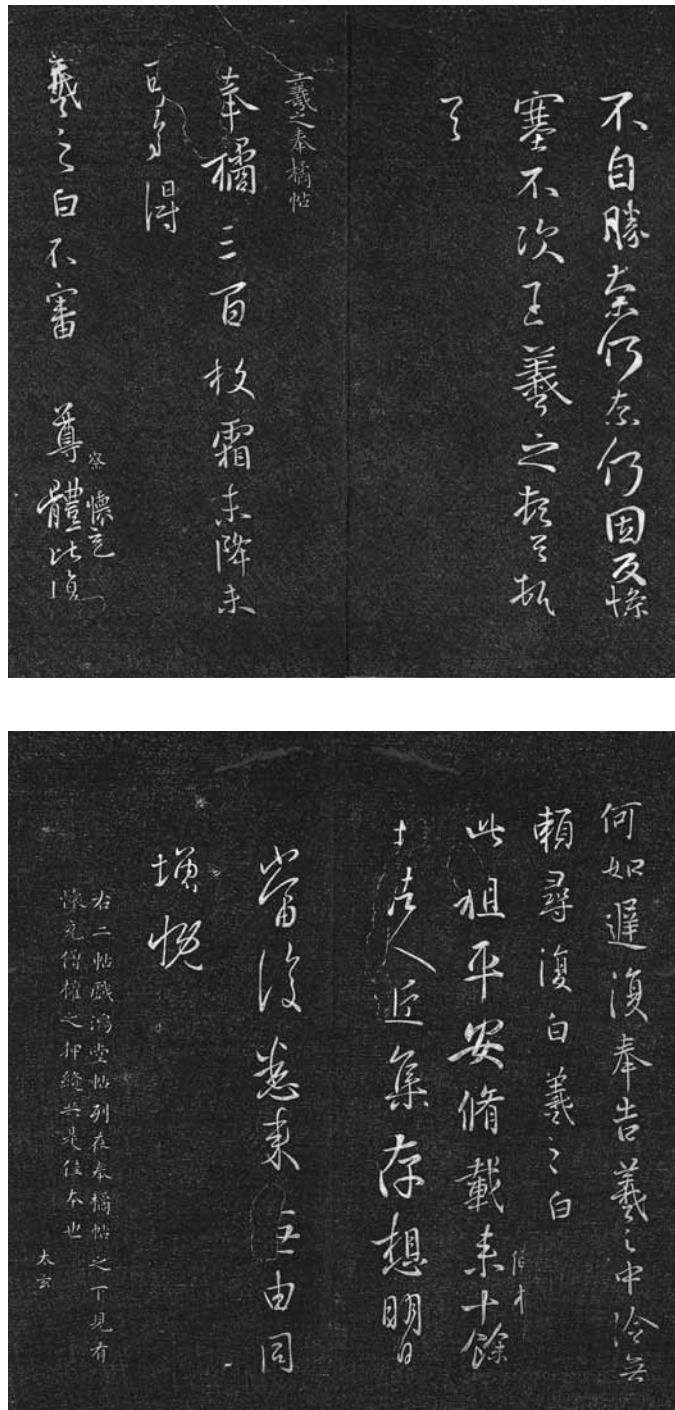 不自勝奈何奈何因反慘
塞不次王羲之頓首頓
首
王羲之奉橘帖
奉橘三百枚霜未降未
可多得
察 懷充
羲之白不審 尊體比復
何如遲復奉告羲之中冷無
賴尋復白羲之白
僧權
此粗平安脩載來十餘
十諸人近集存想明日
當復悉來無由同
增慨
右二帖戲鴻堂帖列在奉橘帖之下現有
懷充僧權之押縫共是佳本也
太玄